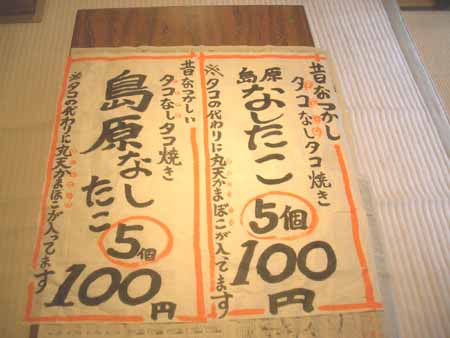 昔なつかし
タコなしタコ焼き
島原なしたこ
5個
100
円
※タコの代わりに丸天かまぼこが入ってます
昔なつかしい
タコなしタコ焼き
島原なし
たこ
5個
100円
※タコの代わりに丸天かまぼこが入ってます